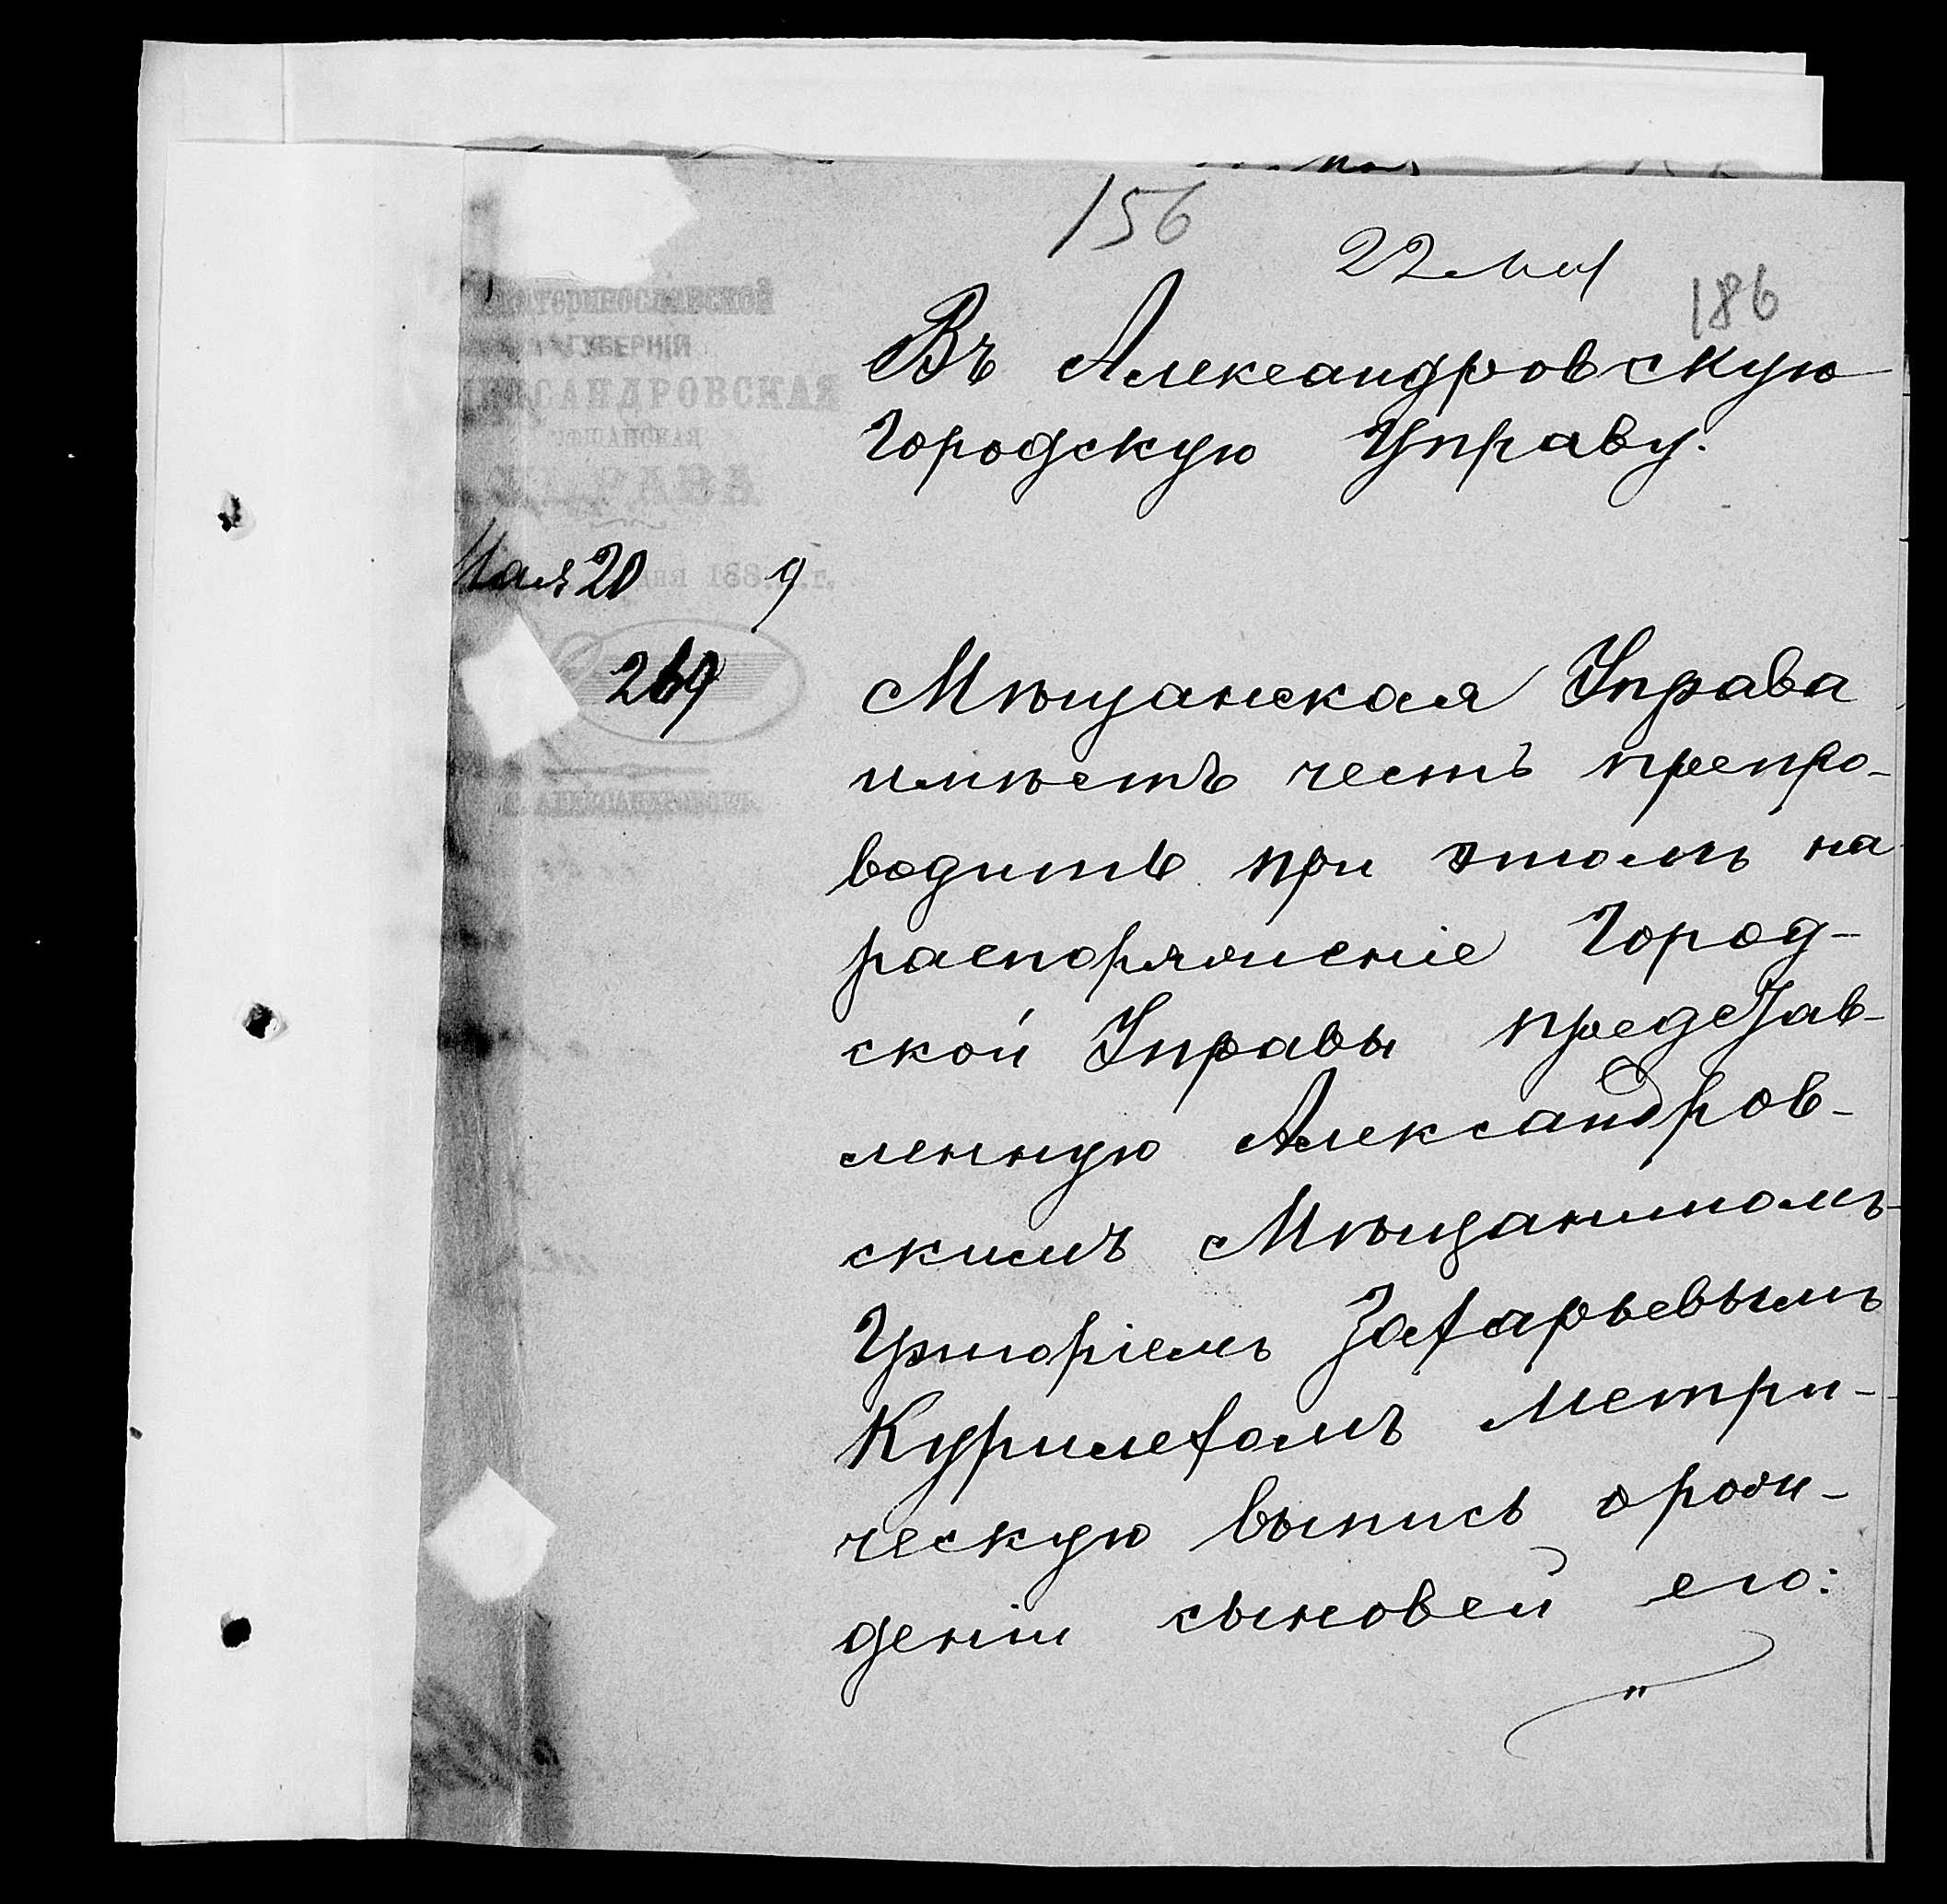 156
22 мая
186
ЕКАТЕРИНОСЛАВСКОЙ
ГУБЕРНІИ
АЛЕКСАНДРОВСКАЯ
МѢЩАНСКАЯ
УПРАВА
Мая 20 дня 188 9 г.
269
Г. АЛЕКСАНДРОВСКЪ.
Въ Александровскую
Городскую Управу.
Мѣщанская Управа
имѣетъ честь препро-
водить при этомъ на
распоряженіе Город-
ской Управы представ-
ленную Александров-
скимъ Мѣщаниномъ
Григоріемъ Захарьевымъ
Курилехомъ метри-
ческую выпись о рож-
деніи сыновей его: